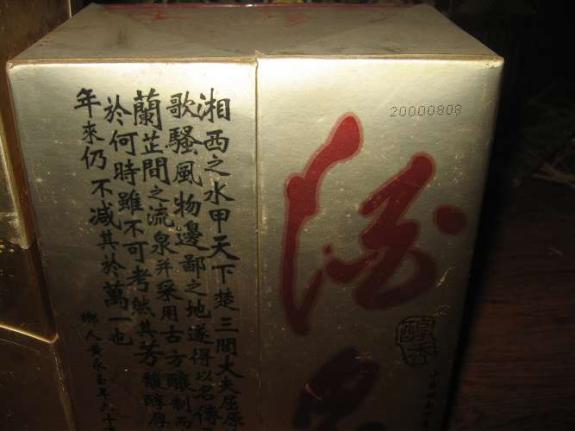 湘西之水甲天下楚三閭大夫屈原
歌騷風物邊鄙之地遂得以名傳
蘭芷間之流泉并采用古方釀制而
於何時雖不可考然其芳馥醇厚
年來仍不减其於萬一也
鄉人黄永玉年六十
20000808
酒
醇香